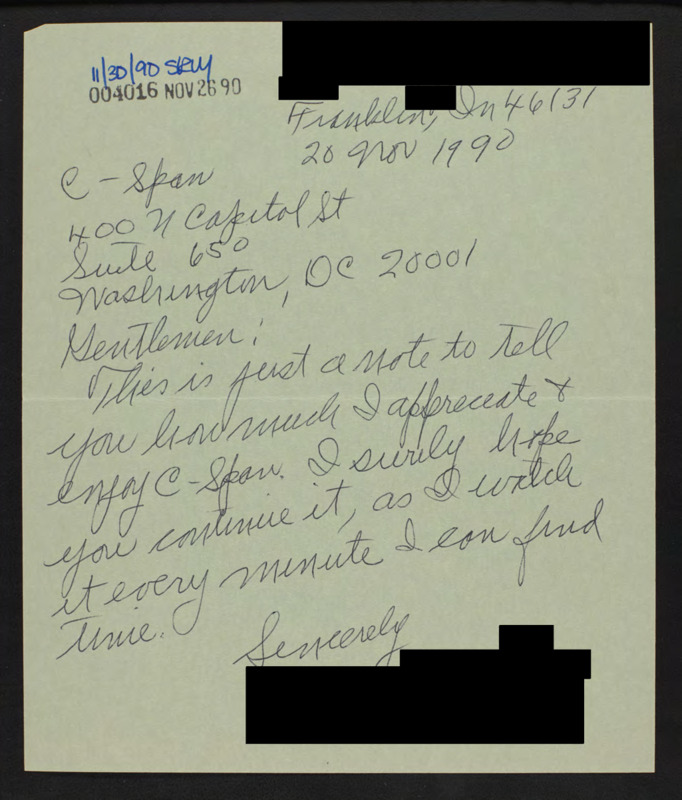 11/30/90
004016 NOV 26 90
Franklin, In 46131
20 Nov 1990
C-Span
400 N Capitol St
Suite 650
Washington, DC 20001
Gentlemen:
This is just a note to tell
you how much I appreciate &
enjoy C-Span. I surely hope
you continue it, as I watch
it every minute I can find
time.
Sincerely